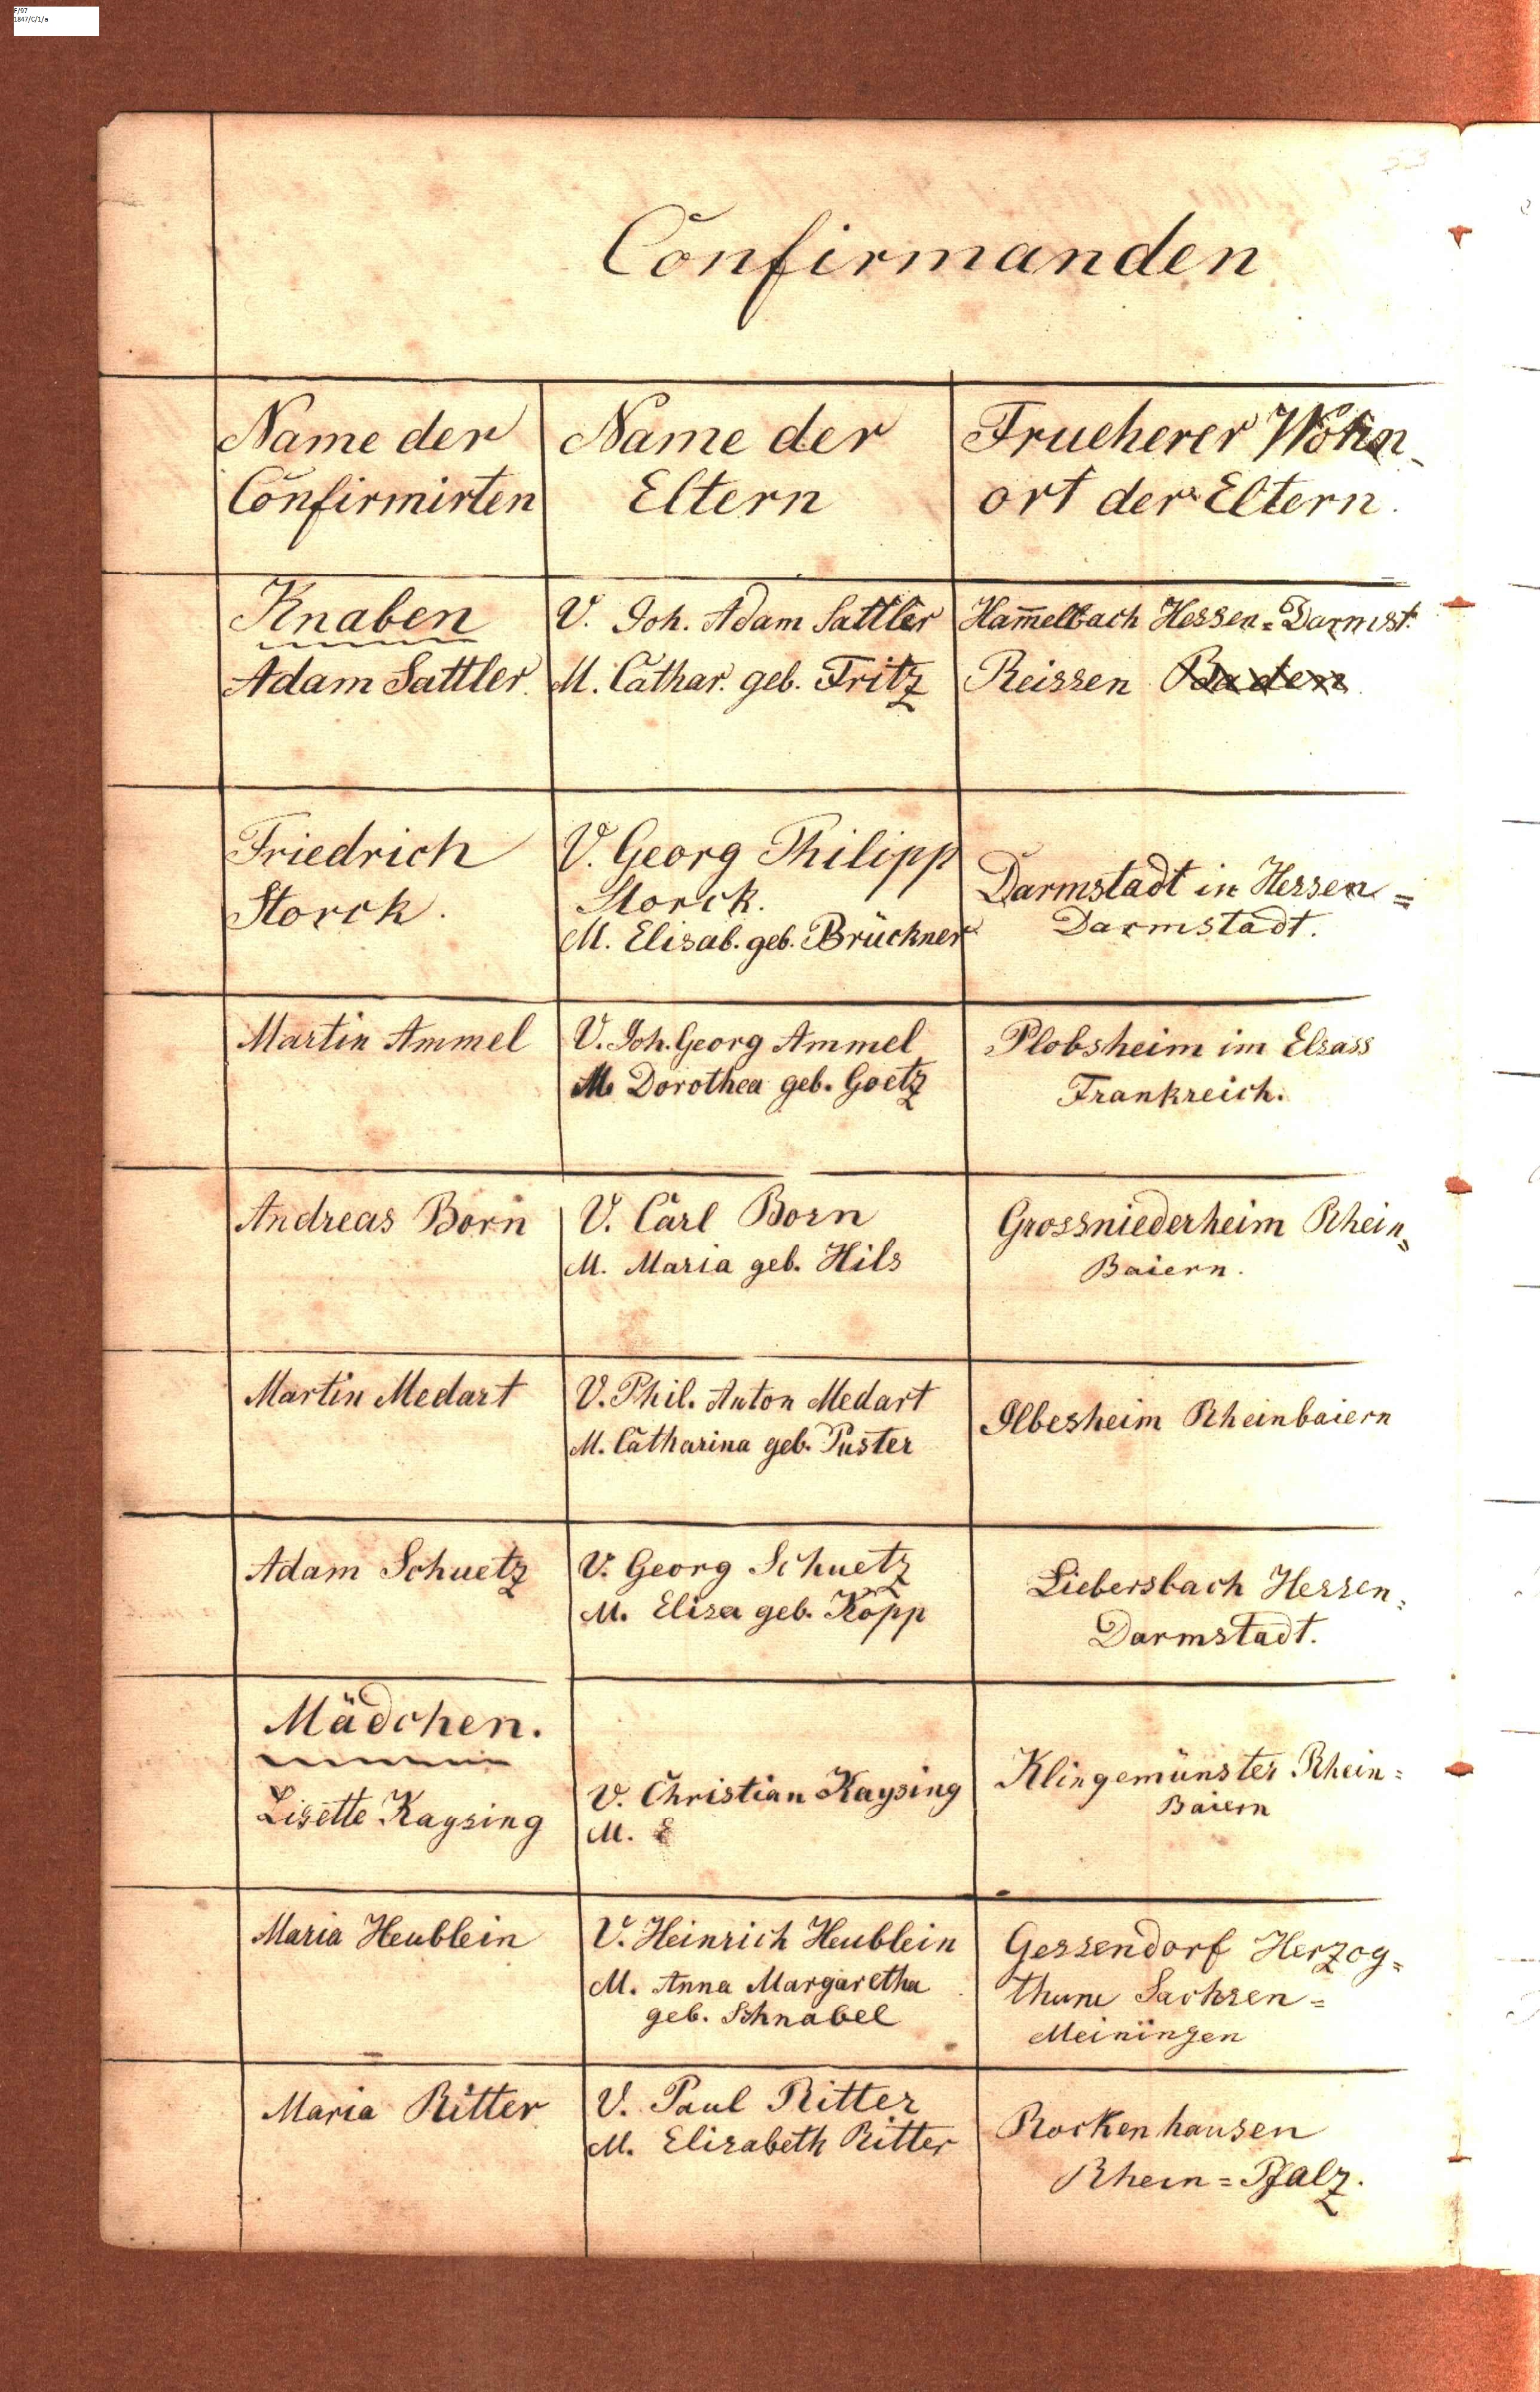 F/97
1847/C/1/a
Confirmanden
Name der
Confirmirten
Name der
Eltern
Frueherer Wohn-
ort der Eltern.
Knaben
Adam Sattler.
V. Joh. Adam Sattler
M. Cathar. geb. Fritz
Ham̅elbach Hessen=Darmst.
Reissen Baden
Friedrich
Storck.
V. Georg Philipp
Storck.
M. Elisab. geb. Brückner
Darmstadt in Hessen=
Darmstadt.
Martin Ammel
V. Joh. Georg Ammel
M. Dorothea geb. Goetz
Plobsheim im Elsass
Frankreich.
Andreas Born
V. Carl Born
M. Maria geb. Hils
Grossniederheim Rhein=
Baiern.
Martin Medart
V. Phil. Anton Medart
M. Catharina geb. Puster
Ilbesheim Rheinbaiern
Adam Schuetz
V. Georg Schuetz
M. Elisa geb. Köpp
Liebersbach Hessen=
Darmstadt.
Mädchen.
Lisette Kaysing
V. Christian Kaysing
M. E
Klingemünster Rhein=
Baiern
Maria Heublein
V. Heinrich Heublein
M. Anna Margaretha
geb. Schnabel
Gessendorf Herzog=
thum Sachsen=
Meiningen
Maria Ritter
V. Paul Ritter
M. Elisabeth Ritter
Rockenhausen
Rhein=Pfalz.